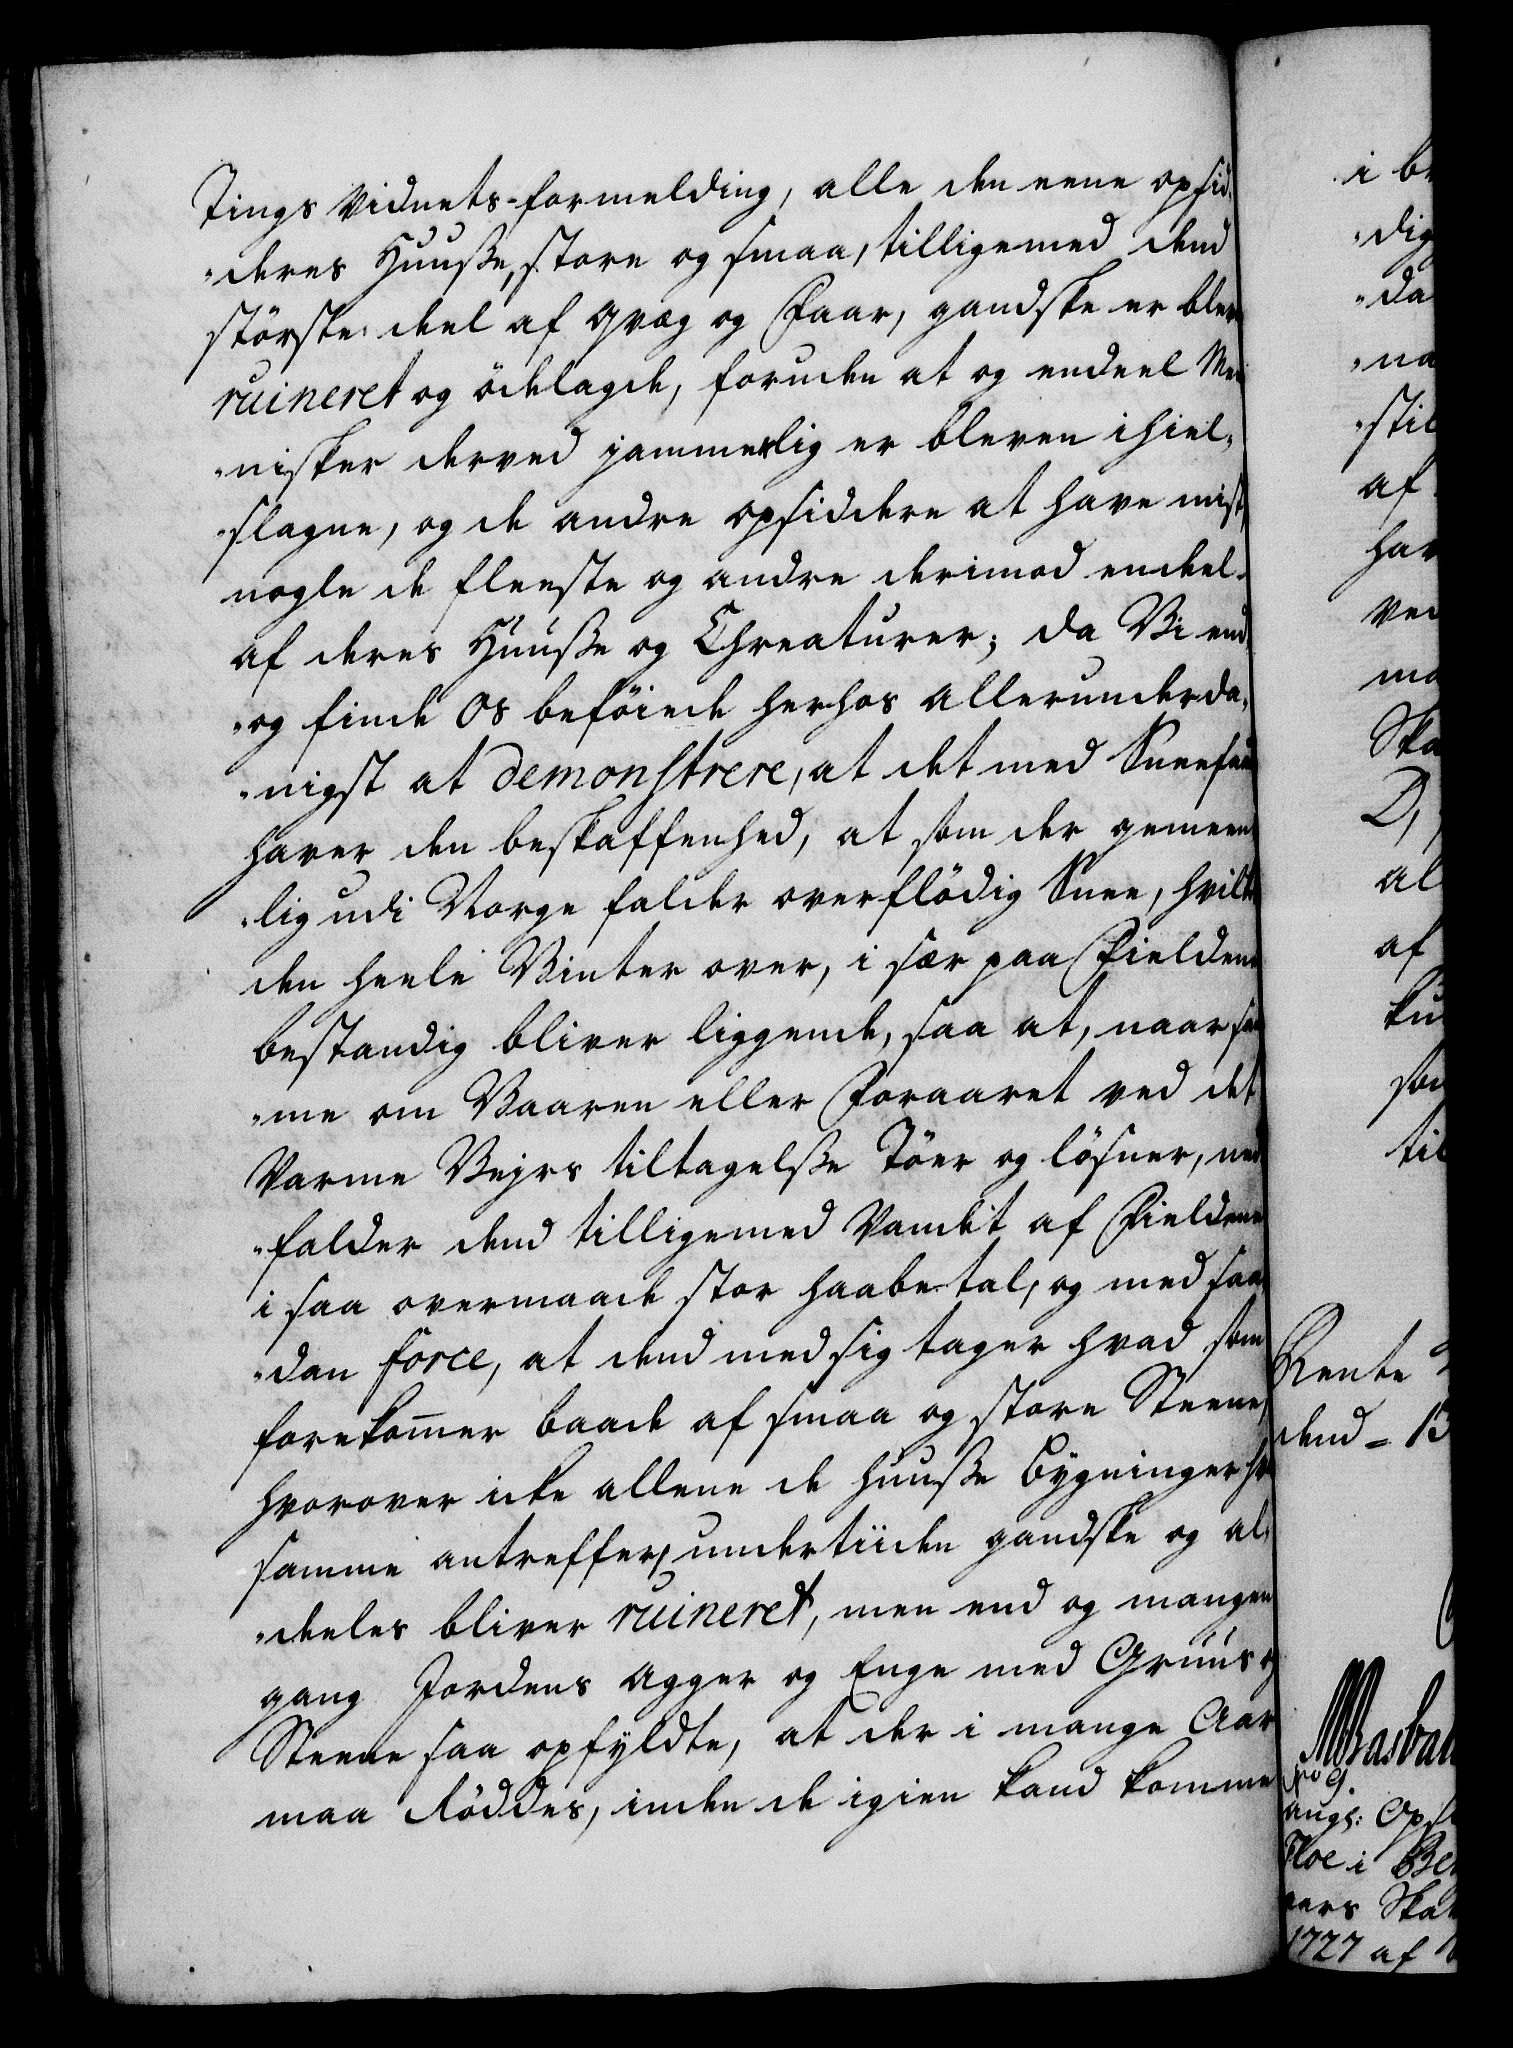 Tings Vidnets-formelding, alle den eene opsid-
"deres Huuße, store og smaa, tilligemed dend
störste deel af Qvæg og Faar, gandske er blev
ruineret og ödelagde, foruden at og endeel Men
"nisker derved jammerlig er bleven ihiel-
"slagne, og de andre opsiddere at have mist,
nogle de fleeste og andre derimod endeel
af deres Huuße og Chreaturer; da Vi end
"og finde Os beföiede herhos allerunderda-
"nigst at demonstrere, at det med Sneefan
haver den beskaffenhed, at som der gemeen
"lig udi Norge falder overflödig Snee, hvilke
den heele Vinter over, i sær paa Fieldene
bestandig bliver liggende, saa at, naar sam
"me om Vaaren eller Foraaret ved det
Varme Vejrs tiltagelße Töer og lösner, ned
"falder dend tilligemed Vandet af Fieldene
i saa overmaade stor haabe-tal, og med saa-
"dan force, at dend med sig tager hvad som
forekom̅er baade af smaa og store Steene,
hvorover icke allene de Huuße Bygninger, som
samme antreffer, undertiiden gandske og al-
"deeles bliver ruineret, men end og mangen
gang Jordens Agger og Enge med Gruus og
Steene saa opfyldte, at der i mange Aar
maa Röddes, inden de igien kand komme
i br
"dig
"da
"na
"stil
af
har
ved
ma
Ska
D,
al
af
ku
som
til
Rente
dend = 13
No 9.
ang: Ops
Floe i Ber
aars Skat
1727 af